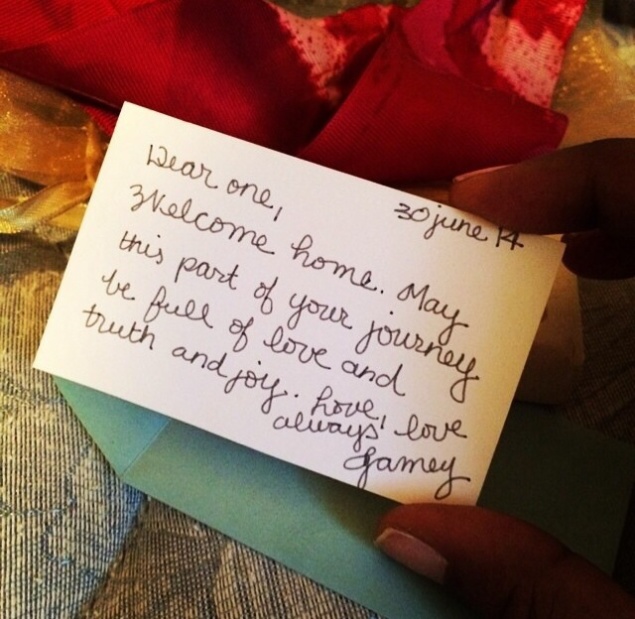 Dear one,
30 june 14
Welcome home. May
this part of your journey
be full of love and
truth and joy. Love, love
always
Jamey